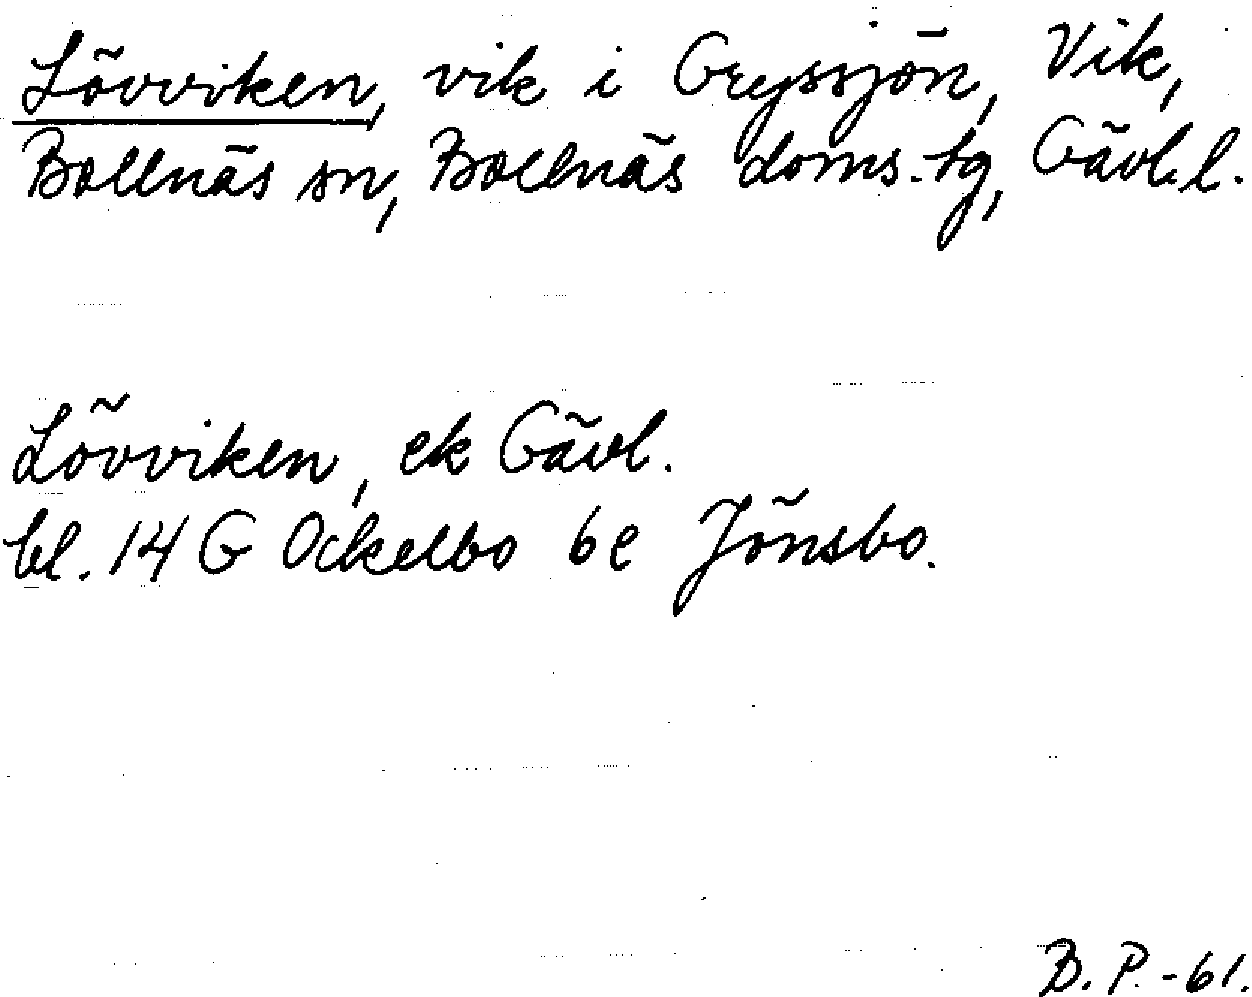 Lövviken, vik i Gryssjön, Vik,
Bollnäs sn, Bollnäs doms.tg, Gävl.l.
Lövviken, ek Gävl.
bl. 14 G Ockelbo 6e Jönsbo.
B. P. -61.